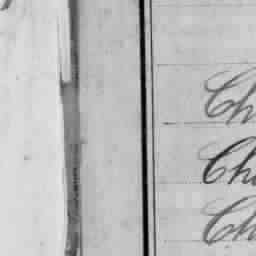 Ch
Cha
Ch